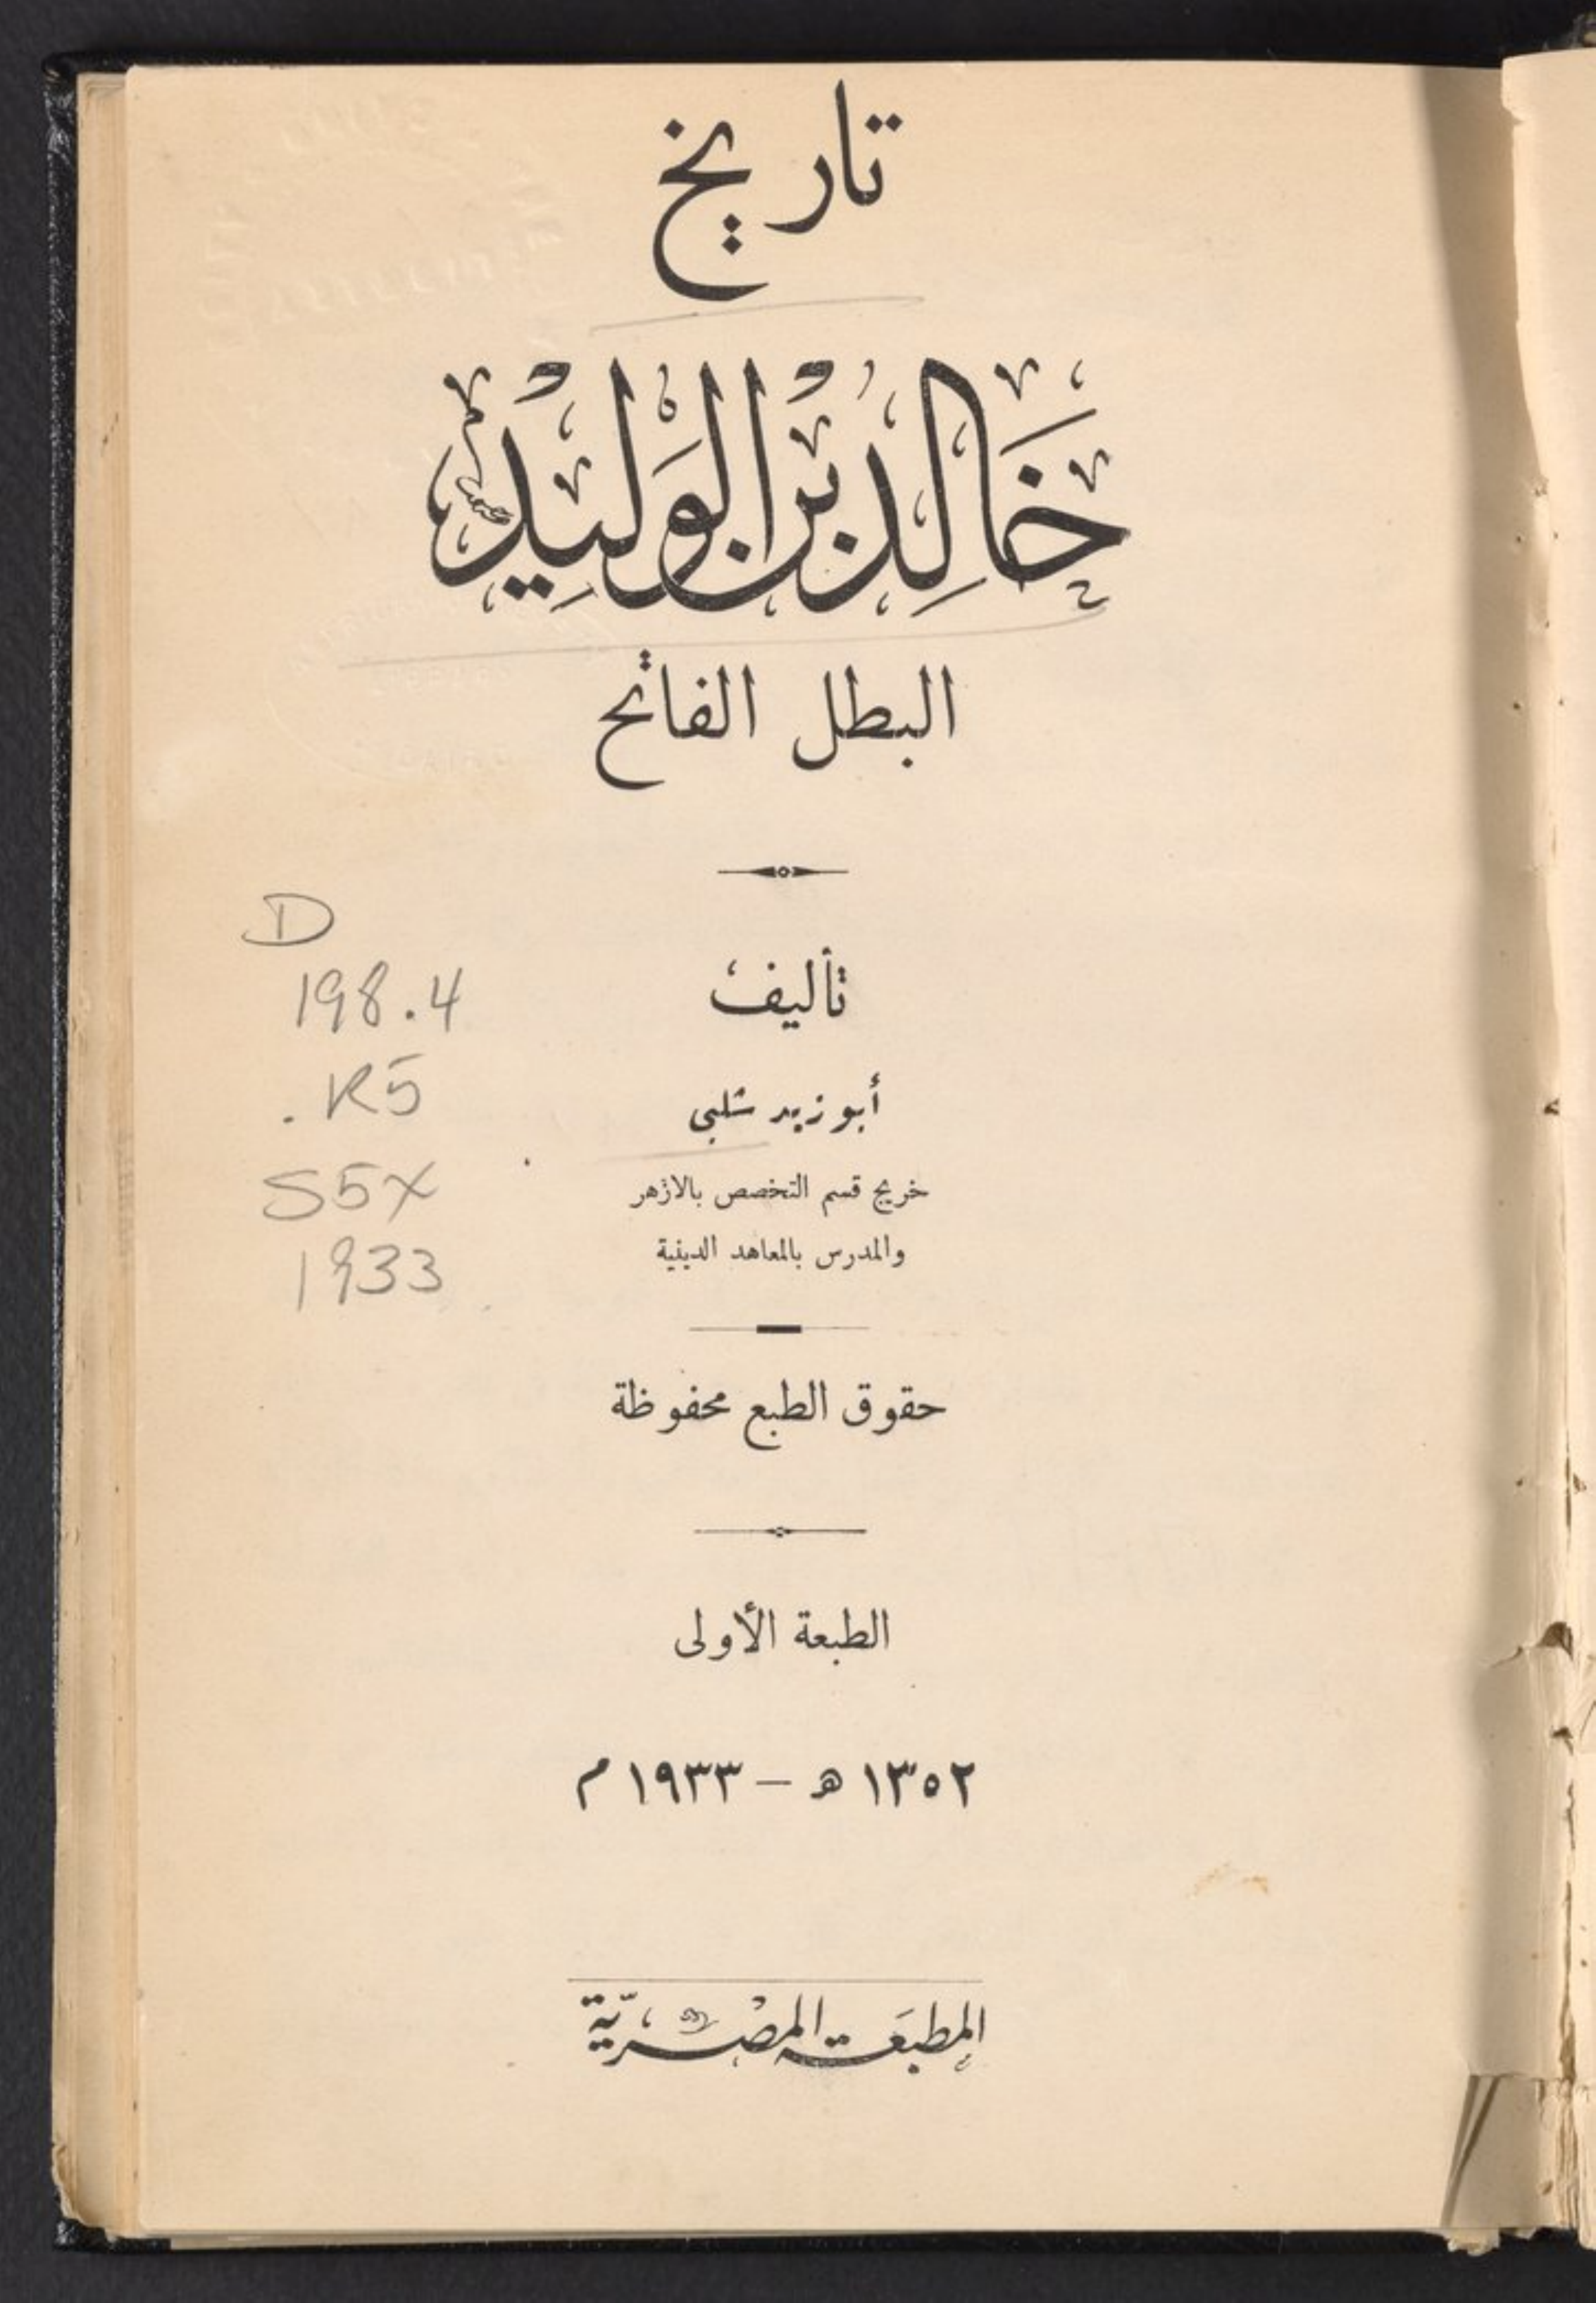 تاريخ
خَالِد بْن الوَلِيْد
البطل الفاتح
تأليف
أبو زيد شلبى
خريج قسم التخصص بالازهر
والمدرس بالمعاهد الدينية
حقوق الطبع محفوظة
الطبعة الأولى
١٣٥٢ ﻫ — ١٩٣٣ م
المطبعَة المصْريّة
D
198.4
.K5
S5X
1933